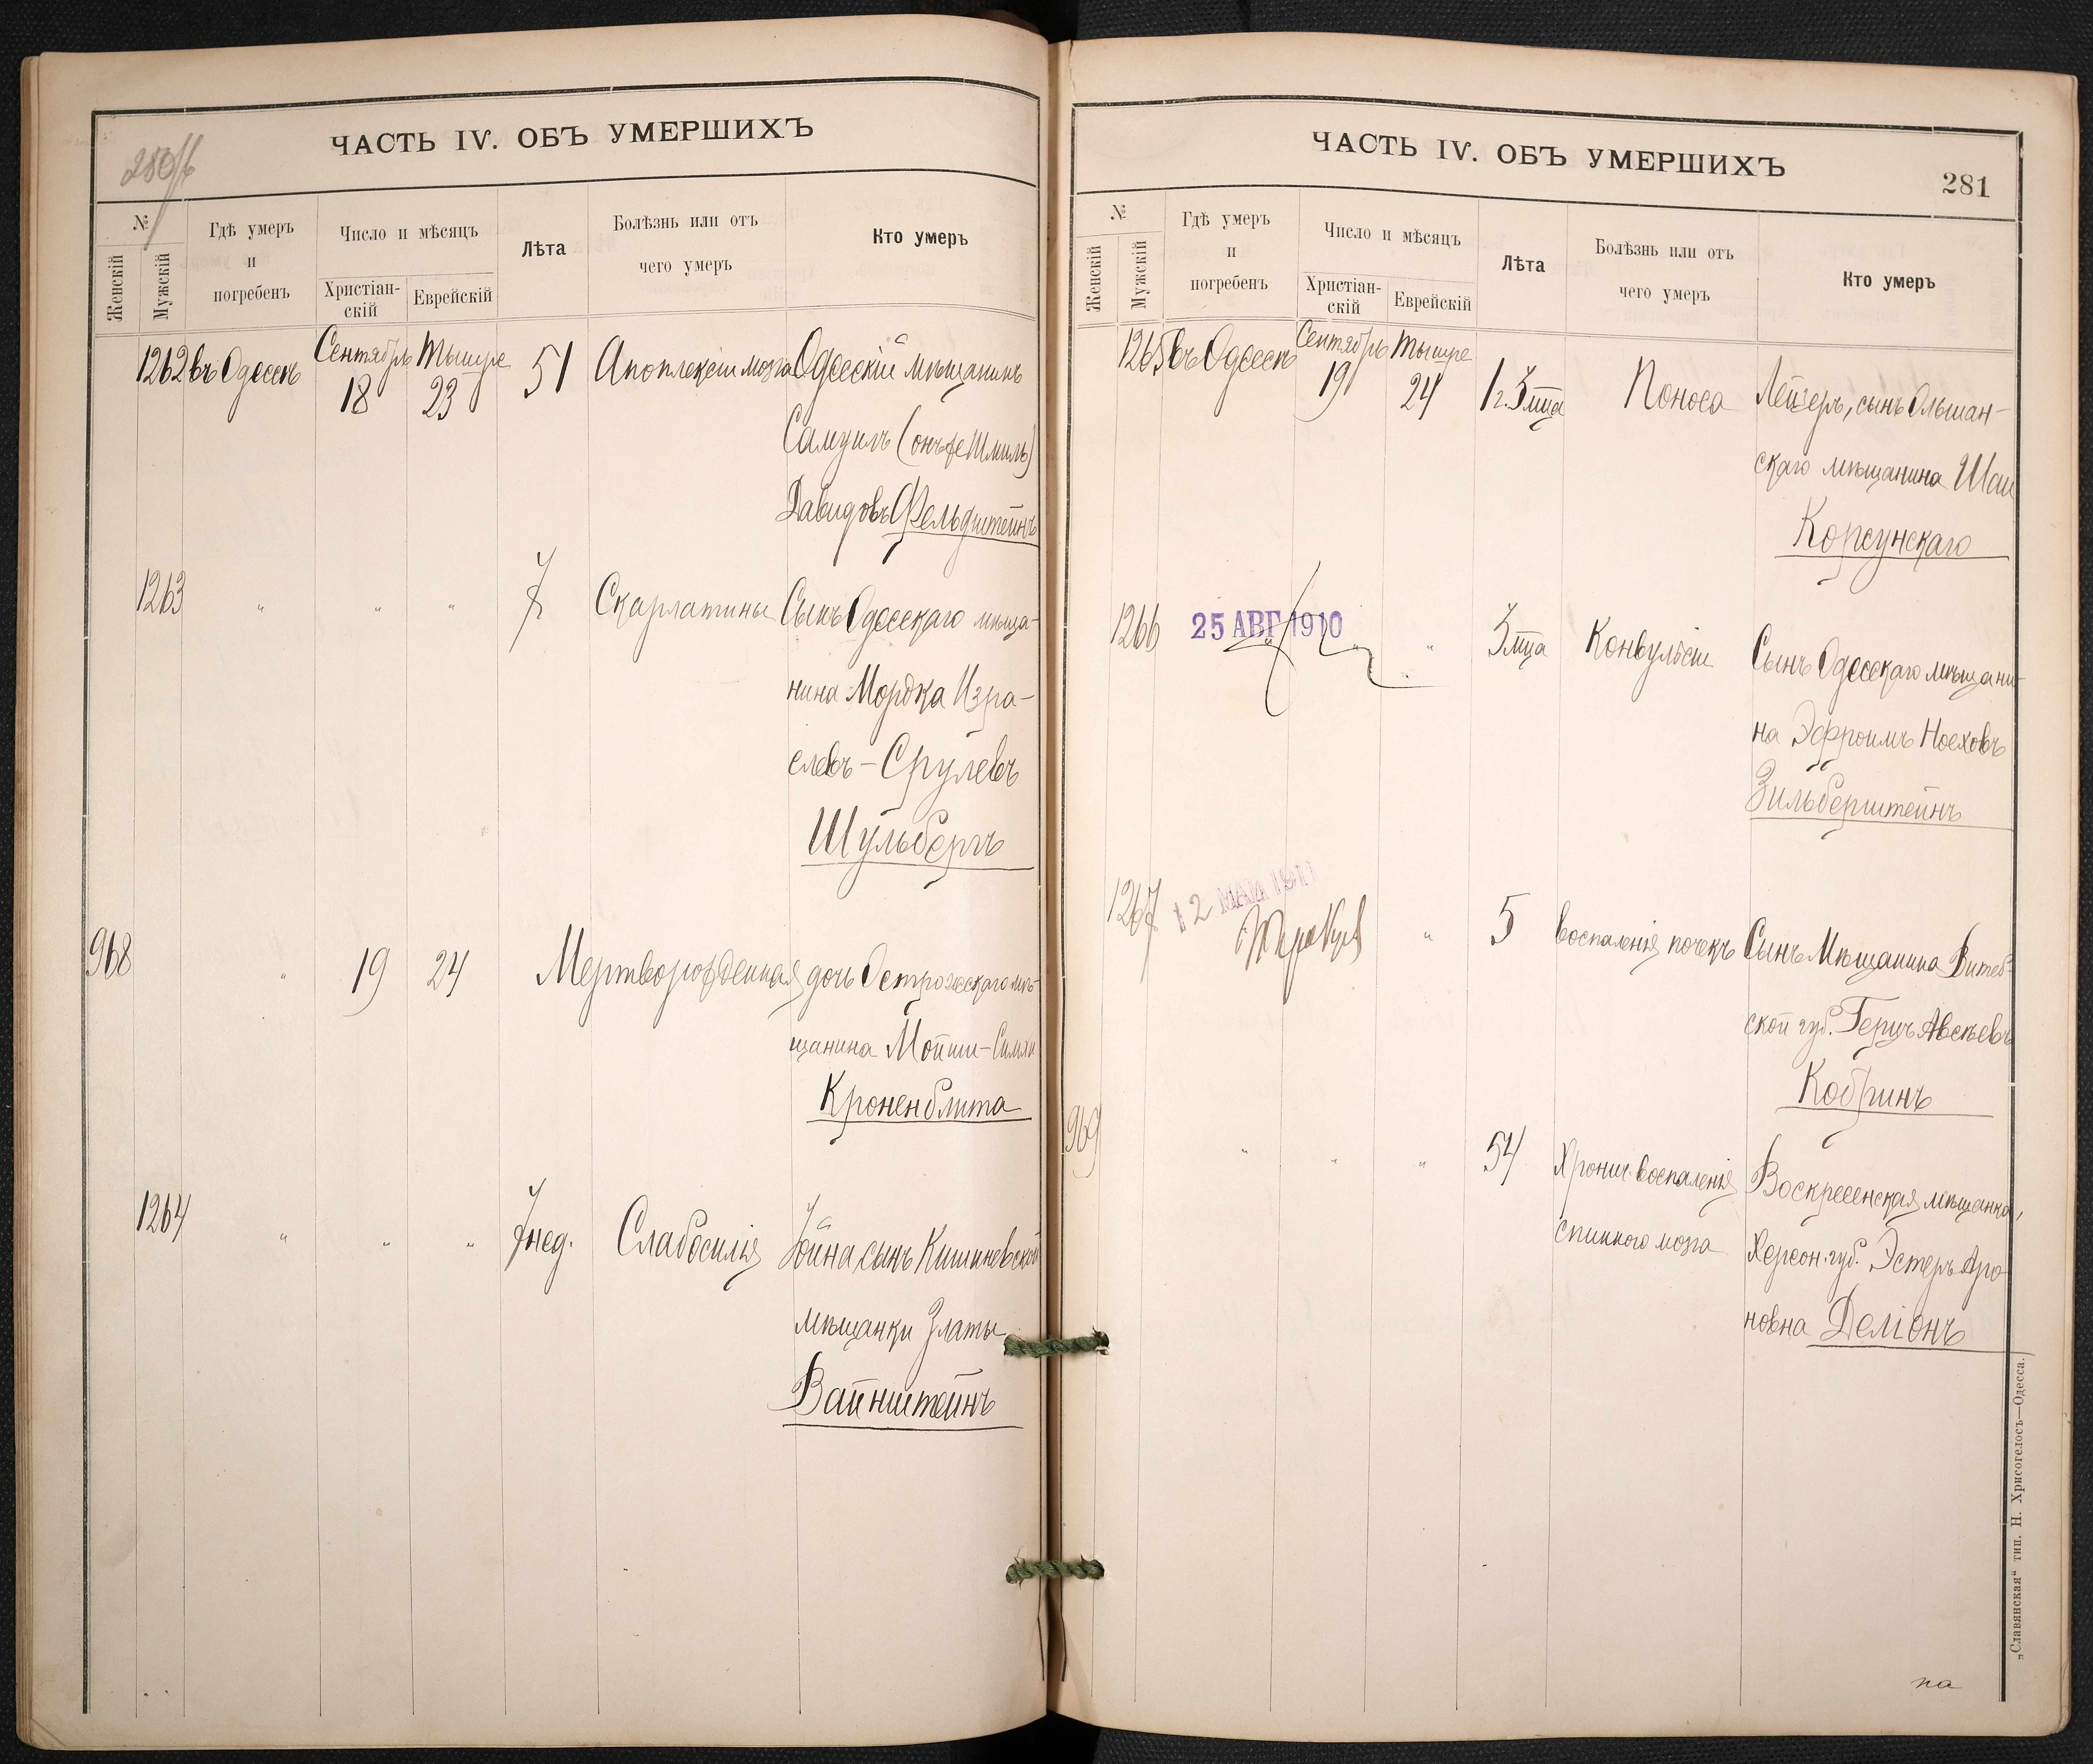 ЧАСТЬ IV. ОБЪ УМЕРШИХЪ
№
Женскій
Мужскій
Гдѣ умеръ
и
погребенъ
Число и мѣсяцъ
Христіан-
скій
Еврейскій
Лѣта
Болѣзнь или отъ
чего умеръ
Кто умеръ
1262 въ Одессѣ Сентябрь 18 Тышре 23 51 Апоплексіи мозга Одесскій мѣщанинъ
Самуилъ (онъ же Шмиль)
Давидовъ Фельдштейнъ
1263 " " " 7 Скарлатины Сынъ Одесскаго мѣща-
нина Мордка Изра-
елевъ-Срулевъ
Шульбергъ
968 " 19 24 Мертворожденная дочь Острожскаго мѣ-
щанина Мойши-
Кроненблита
1264 " " " 7 нед. Слабосилія Іойна, сынъ Кишиневской
мѣщанки Златы
Вайнштейнъ
ЧАСТЬ IV. ОБЪ УМЕРШИХЪ
281
№
Женскій
Мужскій
Гдѣ умеръ
и
погребенъ
Число и мѣсяцъ
Христіан-
скій
Еврейскій
Лѣта
Болѣзнь или отъ
чего умеръ
Кто умеръ
1265 въ Одессѣ Сентябрь 19 Тышре 24 1 г. 3 мца Поноса Лейзеръ, сынъ Ольшан-
скаго мѣщанина Шаи
Корсунскаго
1266 25 АВГ 1910 " 3 мца Конвульсіи Сынъ Одесскаго мѣщани-
на Эфроимъ Ноеховъ
Зильберштейнъ
1267 12 МАЙ 1911 " 5 воспаленія почекъ Сынъ Мѣщанина Витеб-
ской губ. Герцъ
Кобринъ
969 " " " 54 Хронич воспаленія Воскресенская мѣщанка,
спинного мозга Херсон. губ. Эстеръ Аро-
новна Деліонъ
„Славянская“ тип. Н. Хрисогелосъ—Одесса.